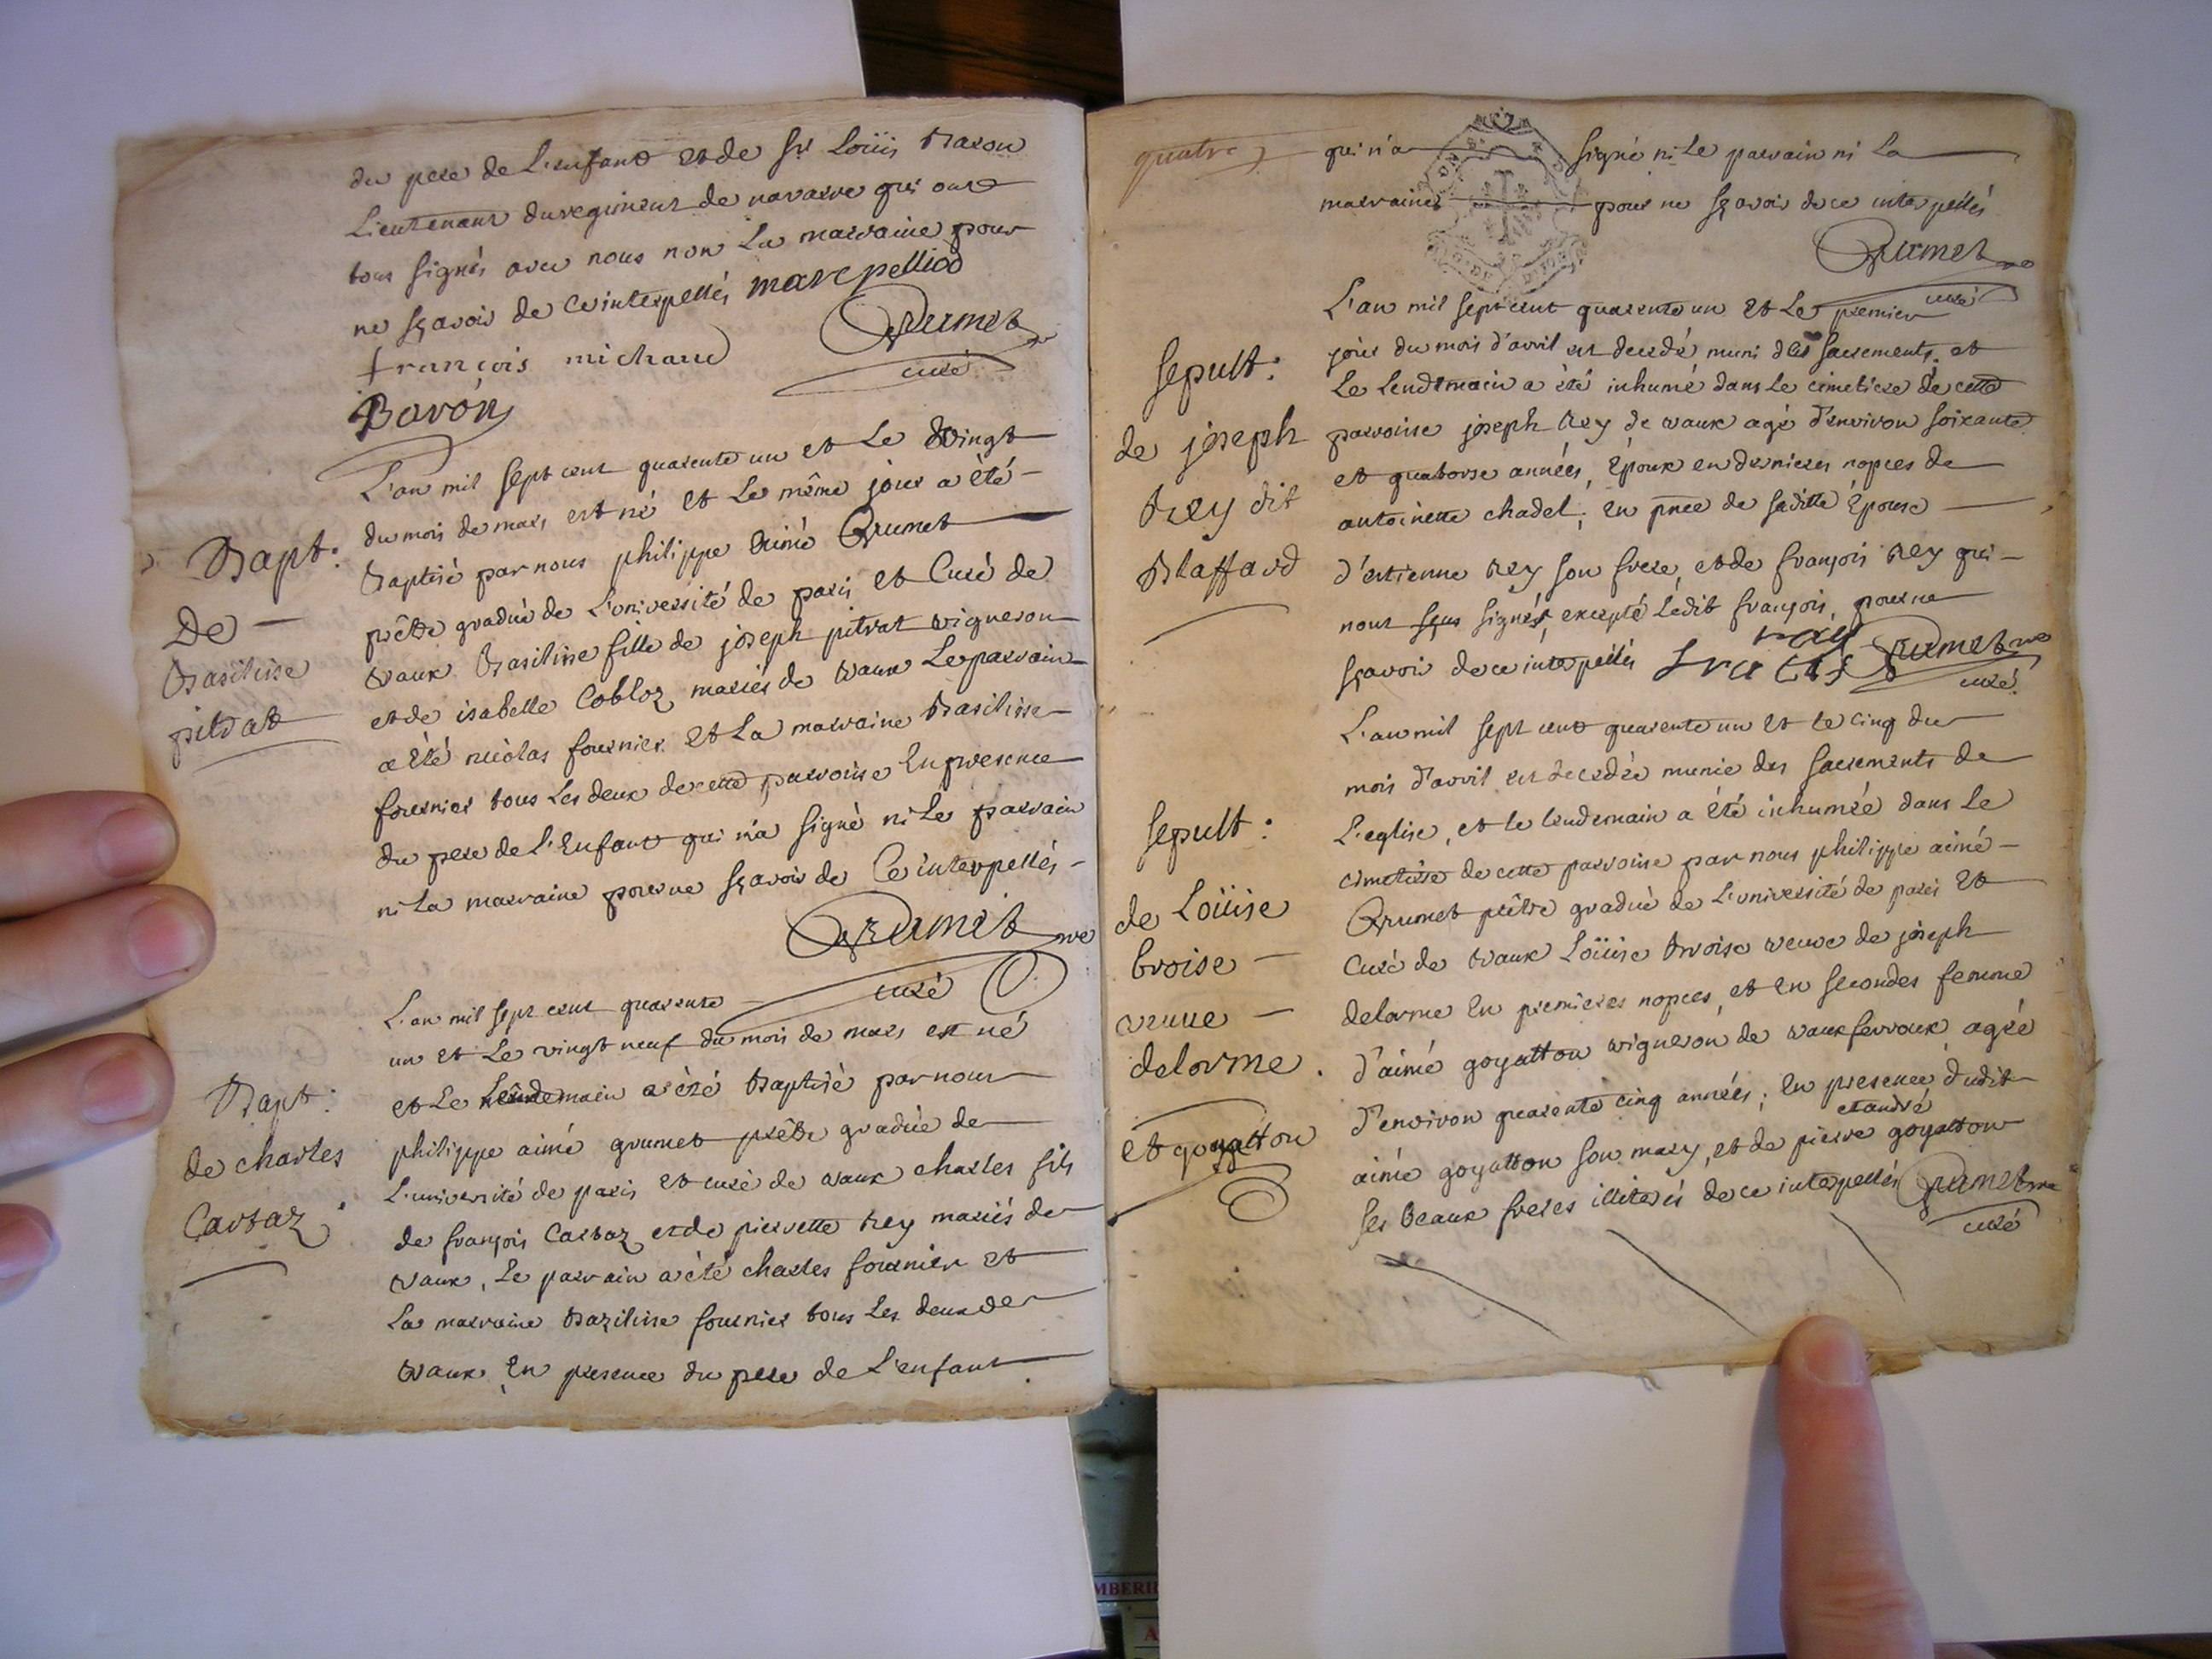 du pere de L'enfant et de Sr Loüis Baron
Lieutenant du regiment de navarre qui ont
tous signés avec nous non La marraine pour
ne sçavoir de ce interpellés marc pelliod
Grumet
françois michaud
curé
Baron
L'an mil sept cent quarente un et Le vingt
du mois de mars est né et Le même jour a été
Bapt:
Baptisé par nous philippe Aimé Grumet
De
prêtre gradué de L'université de paris et Curé de
Basilisse
vaux Basilisse fille de joseph pitrat vigneron
pitrat
et de isabelle Cobloz mariés de vaux Le parrain
a été nicolas fournier et La marraine Basilisse
fournier tous Les deux de cette parroisse En presence
du pere de L'Enfant qui n'a signé ni Le parrain
ni La marraine pour ne sçavoir de Ce interpellés
Grumet
curé
L'an mil sept cent quarente
un et Le vingt neuf du mois de mars est né
et Le lendemain a été Baptisé par nous
Bapt:
philippe aimé grumet prêtre gradué de
de charles
L'université de paris et curé de vaux charles fils
Carraz
de françois Carraz et de pierrette Rey mariés de
vaux, Le parrain a été charles fournier et
La marraine Bazilisse fournier tous Les deux de
vaux En presence du pere de L'enfant
quatre
qui n'a signé ni Le parrain ni La
marraine pour ne sçavoir de ce interpellés
Grumet
curé
L'an mil sept cent quarente un et Le premier
jour du mois d'avril est decedé muni des sacrements et
Sepult:
Le Lendemain a été inhumé dans Le cimetiere de cette
de joseph
parroisse joseph Rey de vaux agé d'environ soixante
et quatorse années, Epoux en dernieres nopces de
Rey dit
antoinette chadel; En pnce de saditte Epouse
Blaffard
d'estienne Rey son frere, et de françois Rey qui
nous sous signés, excepté Ledit françois, pour ne
sçavoir de ce interpellés
rey
Grumet
curé
L'an mil sept cent quarente un et le cinq du
mois d'avril est decedée munie des sacrements de
Sepult:
L'eglise, et le lendemain a été inhumée dans Le
cimetiere de cette parroisse par nous philippe aimé
de Loüise
Grumet prêtre gradué de L'université de paris et
broise
Curé de vaux Loüise Broise veuve de joseph
veuve
delorme En premieres nopces, et en secondes femme
delorme.
d'aimé goyatton vigneron de vaux fevroux, agée
d'environ quarente cinq années; En presence dudit
et goyatton
et andré
aimé goyatton son mary, et de pierre goyatton
ses Beaux freres illiterés de ce interpellés Grumet
curé